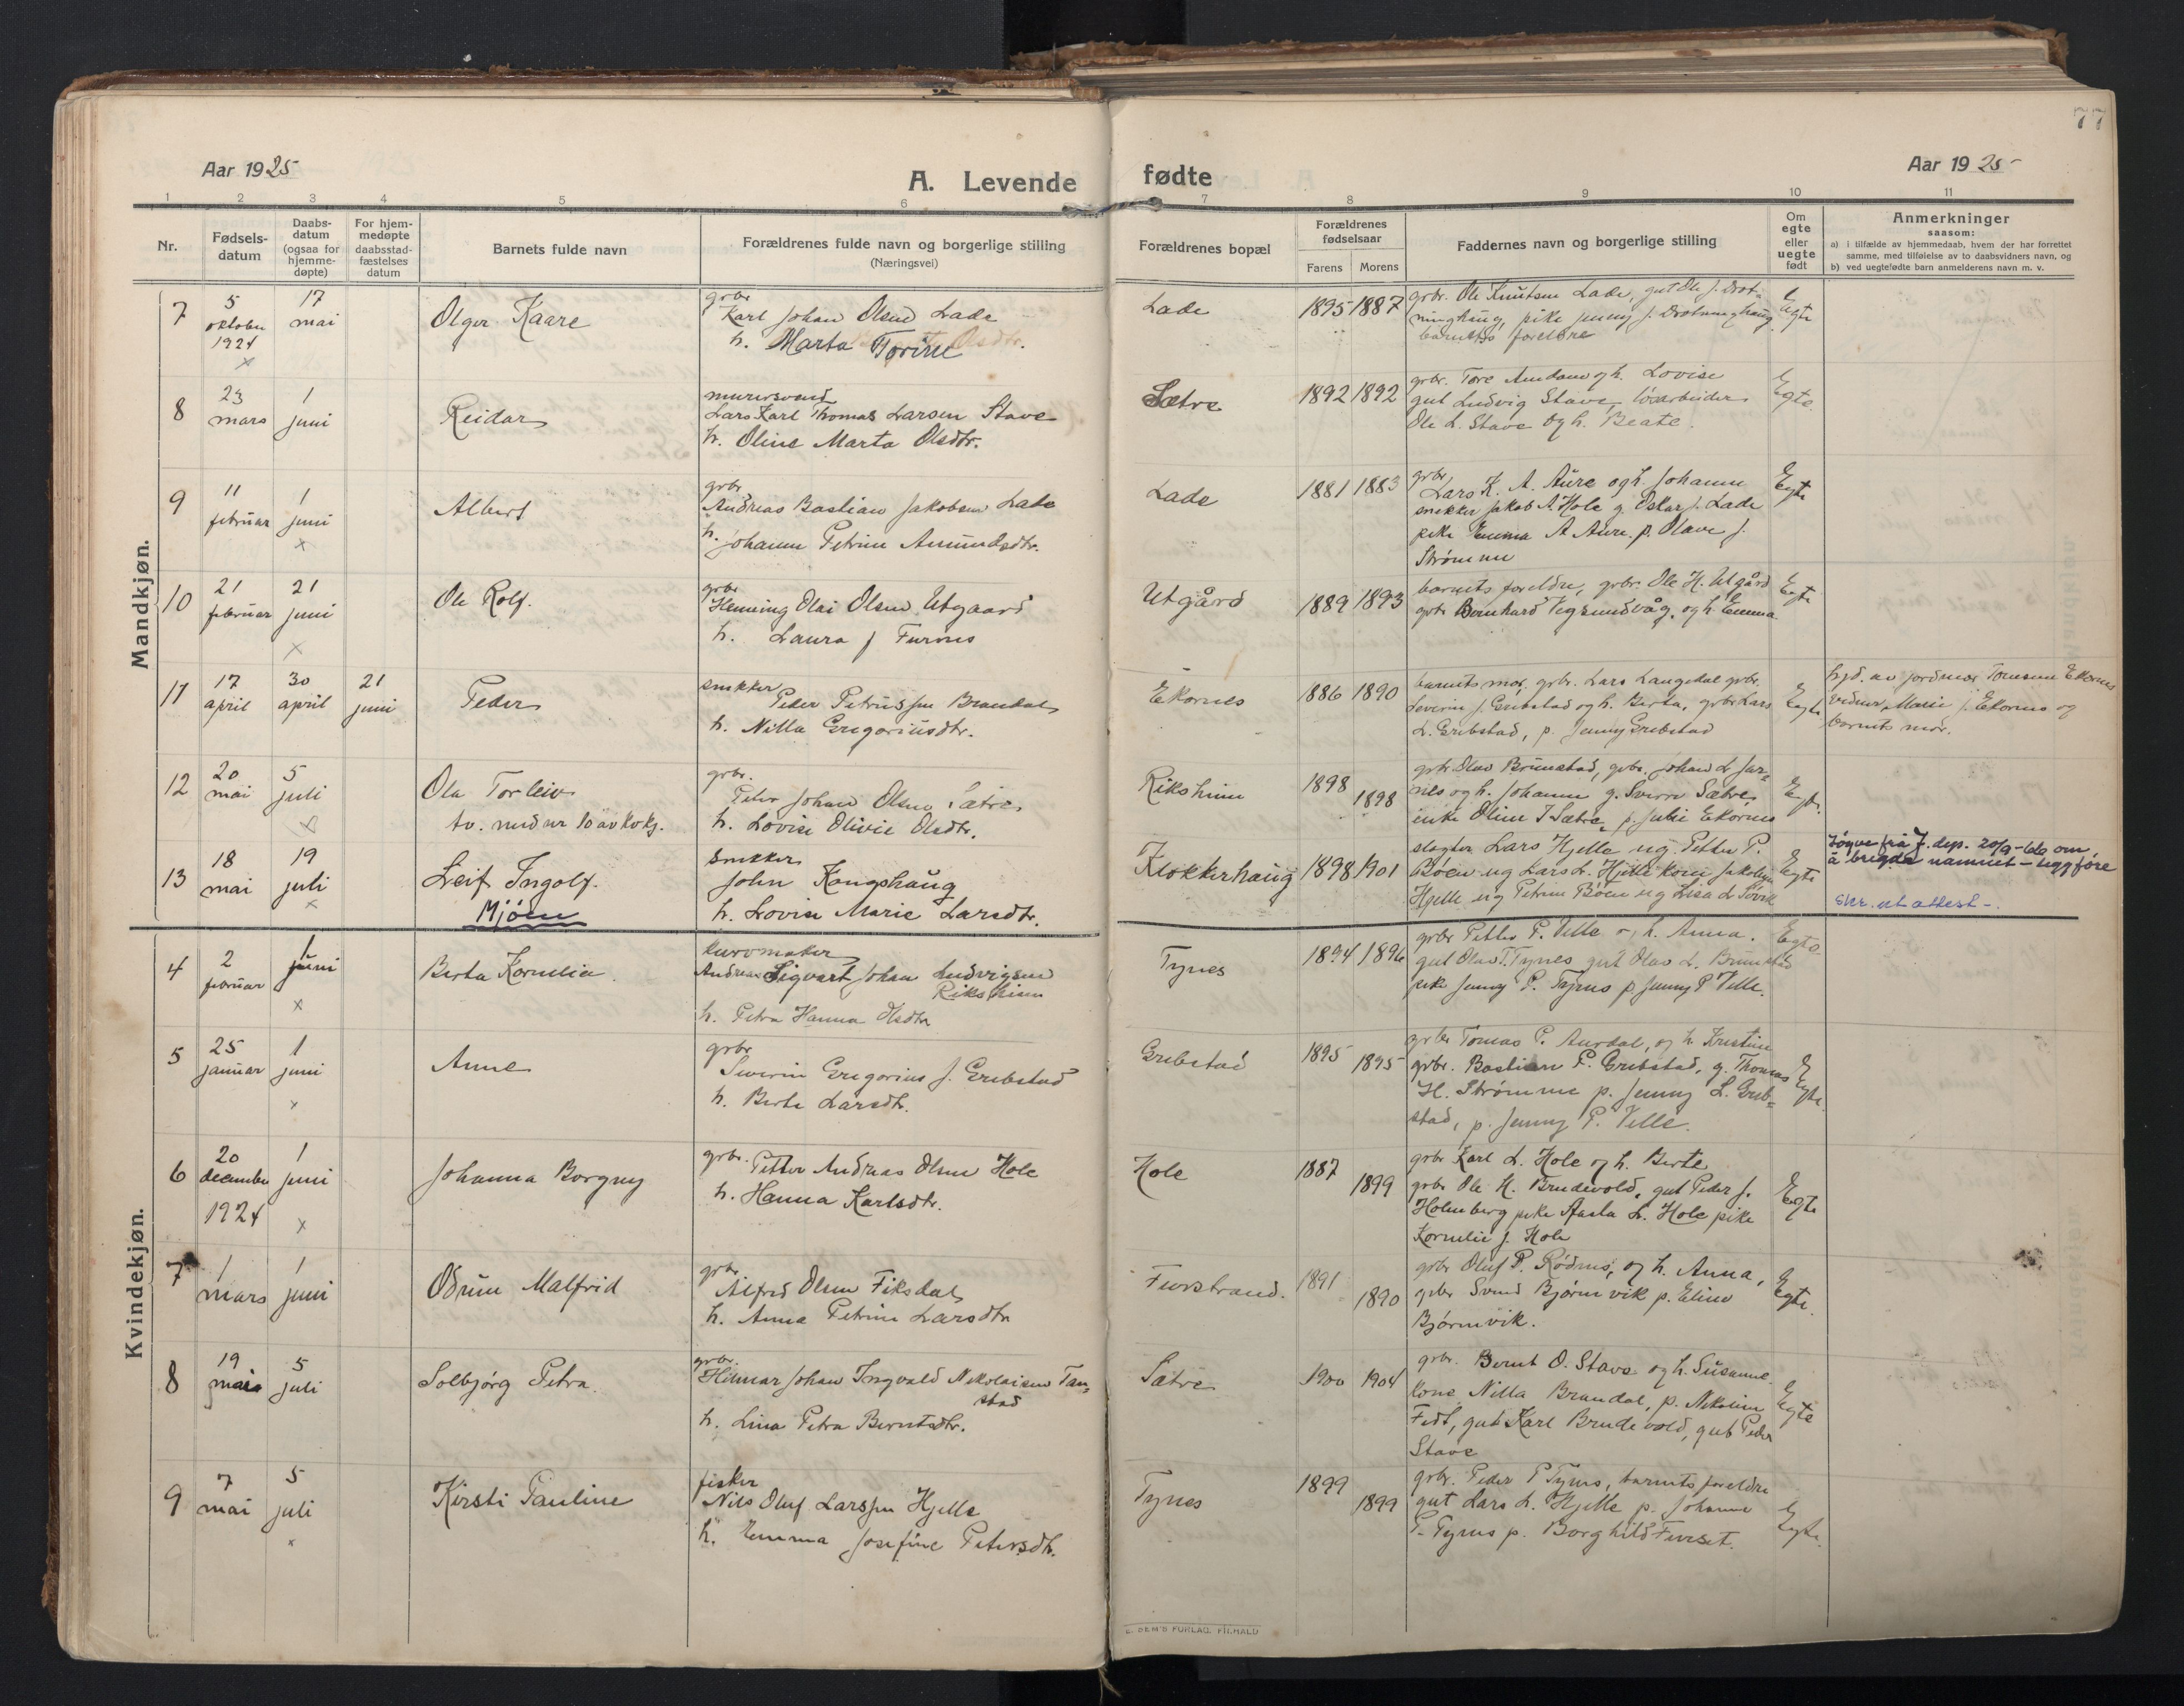 77
Aar 1925
A. Levende fødte
Aar 1925
1 2 3 4 5 6 7 8 9 10 11
Nr.
Fødsels-
datum
Daabs-
datum
(ogsaa for
hjemme-
døpte)
For hjem-
medøpte
daabsstad-
fæstelses
datum
Barnets fulde navn
Forældrenes fulde navn og borgerlige stilling
(Næringsvei)
Forældrenes bopæl
Forældrenes
fødselsaar
Farens Morens
Faddernes navn og borgerlige stilling
Om
egte
eller
uegte
født
Anmerkninger
saasom:
a) i tilfælde av hjemmedaab, hvem der har forrettet
samme, med tilføielse av to daabsvidners navn, og
b) ved uegtefødte barn anmelderens navn m. v.
Mandkjøn.
7
5
oktober
1924
×
17
mai
Olger Kaare
grbr
Karl Johan Olsen Lade
h. Marta Torine
Lade
1895 1887
grbr. Ole Knutsen Lade, gut Ole J. Drot-
ninghaug, pike Jenny J. Drotninghaug
barnets foreldre
Egte
8
23
mars
1
juni
Reidar
murersvend
Lars Karl Thomas Larsen Stave
h. Oline Marta Olsdtr.
Sætre
1892 1892
grbr. Tore Amdam og h. Lovise
gut Ludvig Stave, løsarbeider
Ole L. Stave og h. Beate.
Egte.
9
11
februar
1
juni
×
Albert
grbr
Andreas Bastian Jakobsen Lade
h. Johanne Petrine Amundsdtr.
Lade
1881 1883
grbr
Lars K. A. Aure og h. Johanne
snekker Jakob A. Hole g. Oskar J. Lade
pike Emma A Aure. p. Olave J.
Strømme
Egte
10
21
februar
21
juni
×
Ole Rolf.
grbr
Henning Olai Olsen Utgaard
h. Laura J Furnes
Utgård
1889 1893
barnets foreldre, grbr. Ole H. Utgård
grbr Bernhard Vegsundvåg. og h. Emma
Egte
11
17
april
30
april
21
juni
Peder
snekker
Peder Petrus Jsen Brandal
h. Nilla Gregoriusdtr.
Ekornes
1886 1890
barnets mor, grbr. Lars Langedal grbr.
Severin J. Grebstad og h. Berta, grbr Lars
L. Grebstad, p. Jenny Grebstad
Egte
hjd. av jordmor Tomine Ekornes
vidner, Marie J. Ekornes og
barnets mor.
12
20
mai
5
juli
×
Ola Torleiv
tv. med nr 10 av kvkj.
grbr.
Peter Johan Olsen Sætre
h. Lovise Olivie Olsdtr.
Riksheim
1898
1898
grbr Olav Brunstad, grbr. Johan L Fur-
nes og h. Johanne g. Sverre Sætre,
enke Oline J Sætre, p. Julie Ekornes
Egte.
13
18
mai
19
juli
×
Leif Ingolf.
Mjøen
snekker
John Kongshaug
h. Lovise Marie Larsdtr.
Klokkerhaug
1898 1901
slagter Lars Hjelle og Petter P.
Bøen og Lars L. Hjelle kone Jakobine
Hjelle og Petrine Bøen og Lisa L Søvik
Egte
Løyve frå J. dep. 20/9-60 om
å brigde namnet - legg føre
Skr. ut attest -.
Kvindekjøn.
4
2
februar
1
juni
×
Berta Kornelia.
kurvmaker
Andreas Sigvart Johan Ludvigsen
Riksheim
h. Petra Hanna Olsdtr
Tynes
1894 1896
grbr Petter P. Velle og h. Anna.
gut Olav T. Tynes gut Olav L. Brunstad
pike Jenny P. Tynes p. Jenny P Velle.
Egte
5
25
januar
1
juni
×
Anne
grbr
Severin Gregorius J. Grebstad
h. Berte Larsdtr.
Grebstad
1895
1895
grbr Tomas P. Aurdal, og h Kristine
grbr. Bastian P. Grebstad, g. Thomas
H. Strømme p. Jenny L. Greb-
stad, p. Jenny P. Velle.
Egte.
6
20
december
1924
1
juni
×
Johanna Borgny
grbr. Petter Andreas Olsen Hole
h. Hanna Karlsdtr.
Hole
1887
1899
grbr Karl L. Hole og h. Berte
grbr Ole K. Brudevold, gut Peder J.
Holmberg pike Aasta L. Hole pike
Kornelie J. Hole
Egte
7
1
mars
1
juni
Odrun Malfrid
grbr
Alfred Olsen Fiksdal
h. Anna Petrine Larsdtr
Furstrand.
1891
1890
grbr Oluf P. Rødnes, og h. Anna,
grbr Svend Bjørnevik p. Eline
Bjørnevik.
Egte.
8
19
mars
5
juli
Solbjørg Petra.
grbr.
Hilmar Johan Ingvald Nikolaisen Tan-
stad
h. Lina Petra Berntsdtr.
Sætre
1900 1904
grbr. Bernt O. Stave og h. Susanne.
kone Nilla Brandal, p. Nikoline
Fedt, gut Karl Brudevold, gut Peder
Stave
Egte
9
7
mai
5
juli
×
Kirsti Pauline
fisker
Nils Oluf Larssen Hjelle
h. Emma Josefine Petersdtr.
Tynes
1899
1899
grbr. Peder P Tynes, barnets foreldre
gut Lars L. Hjelle p. Johanne
P. Tynes p. Borghild Furset.
Egte.
E. SEM'S FORLAG, FR.HALD